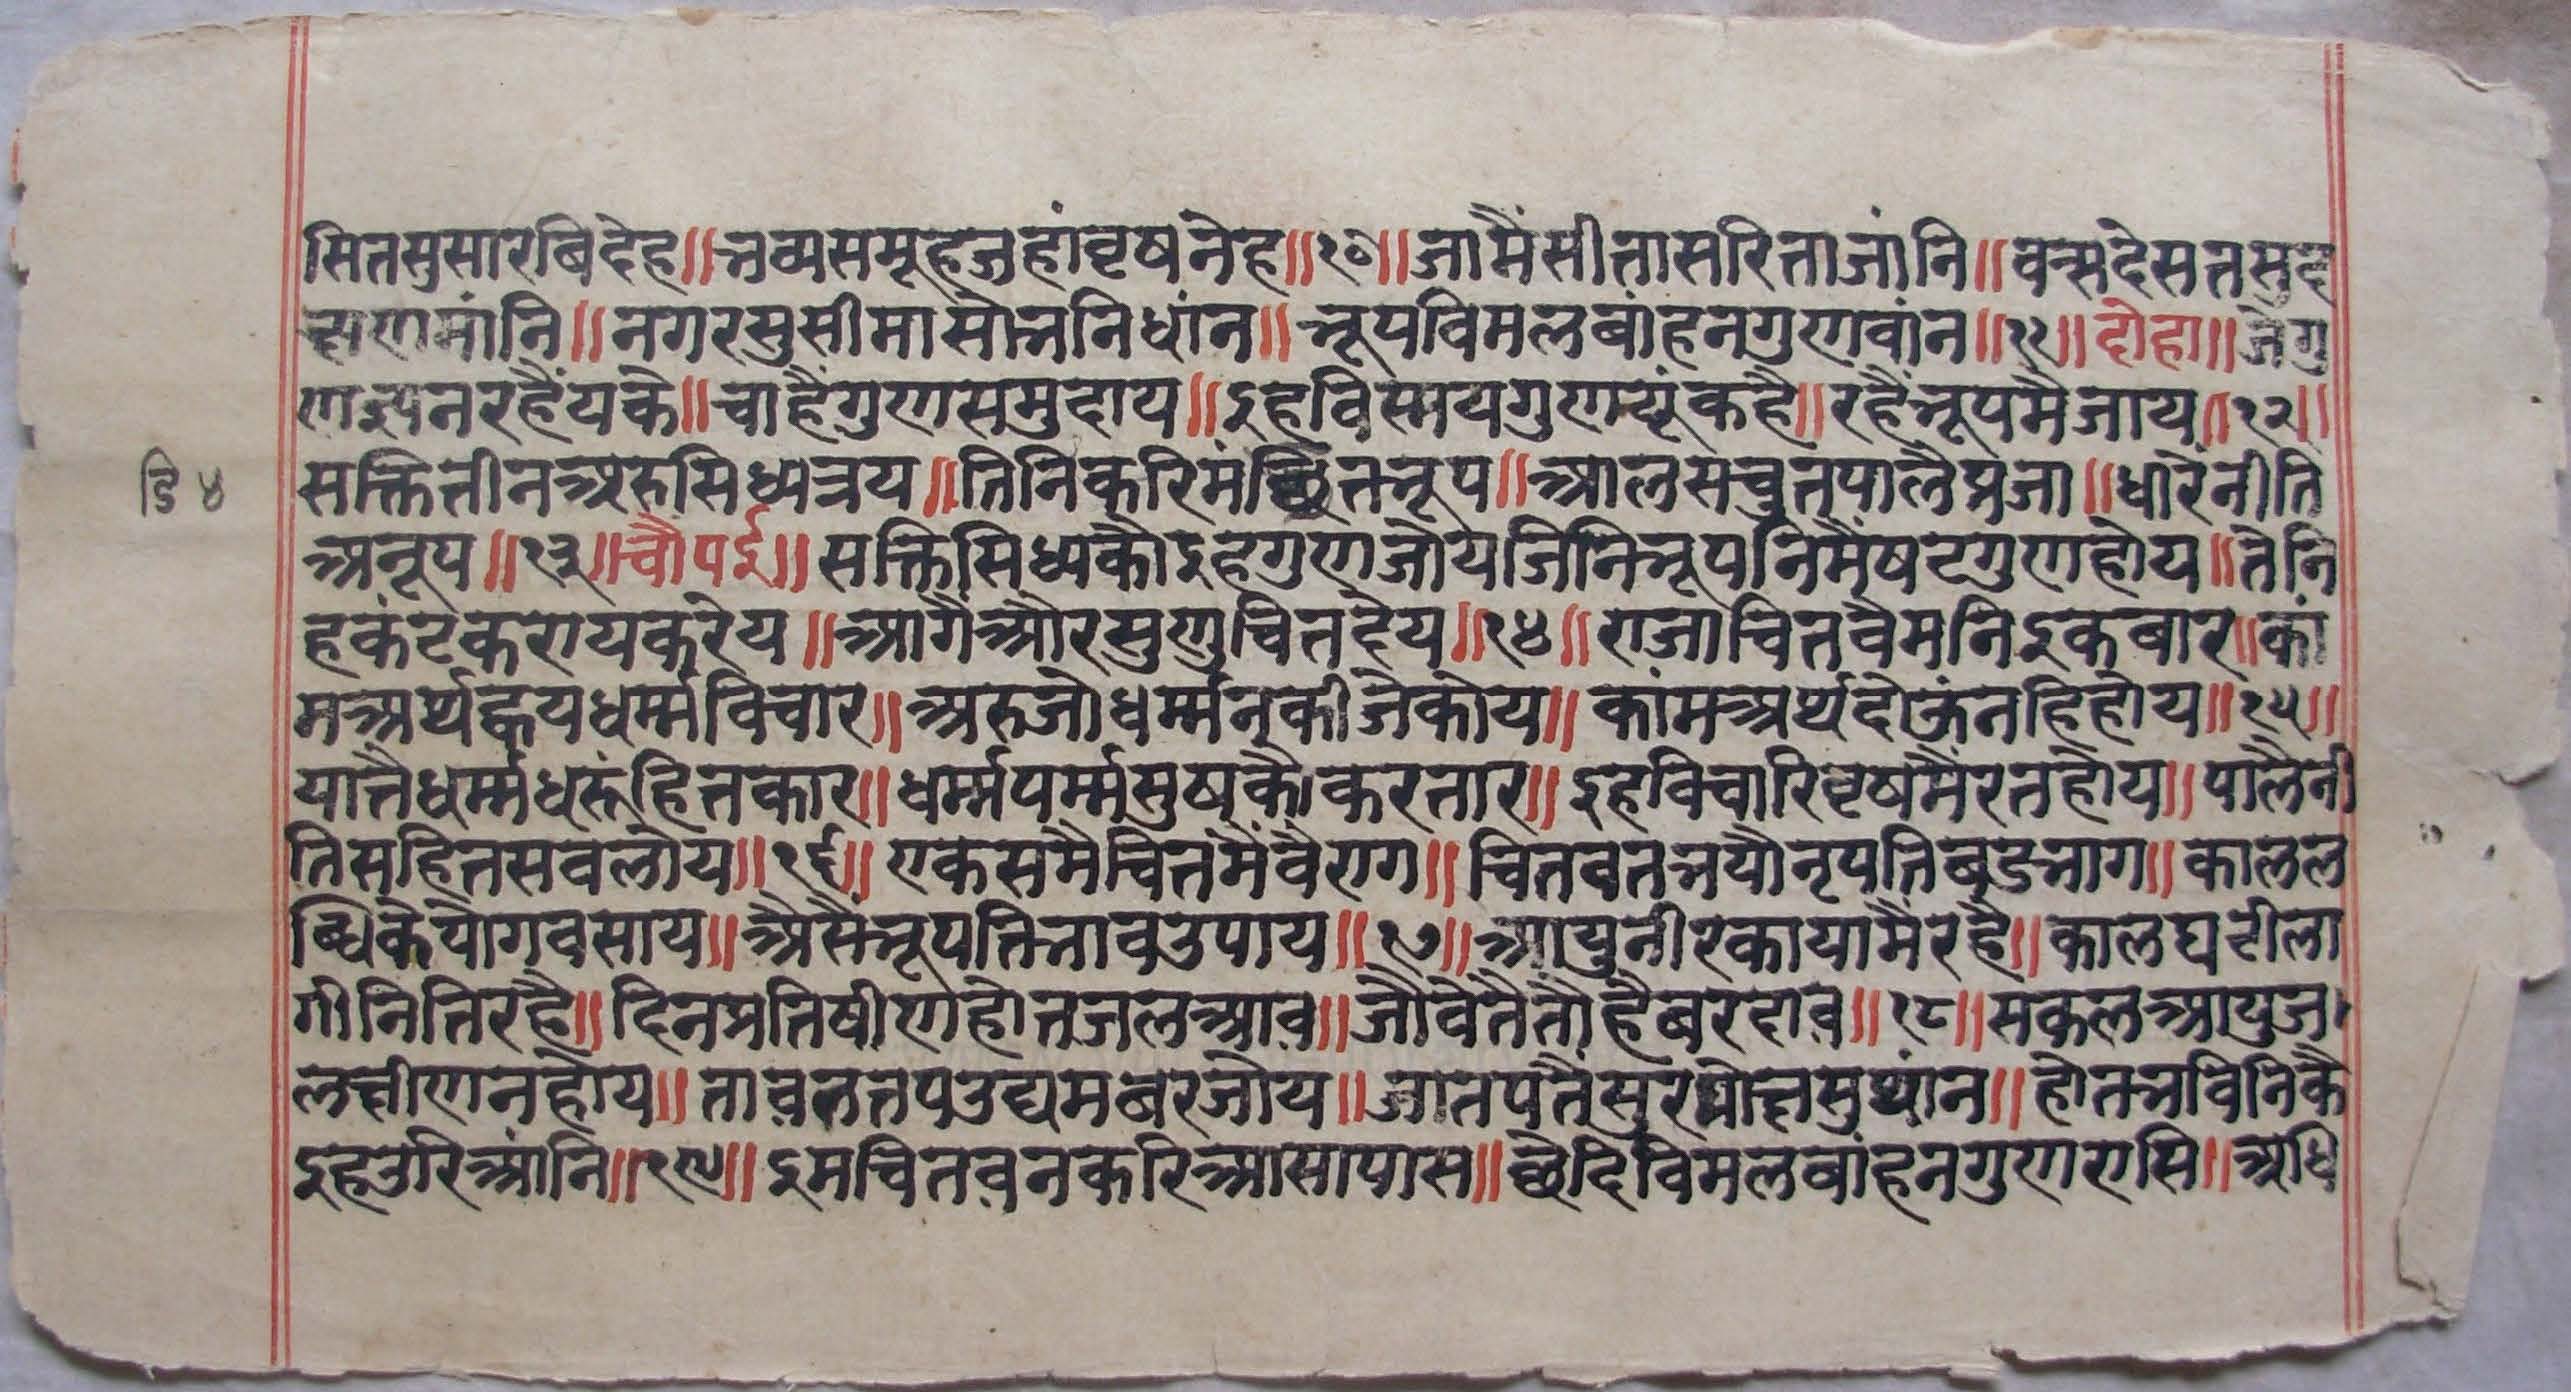 सितसुसारबिदेह॥भव्यसमूहजहांवृषनेह॥१०॥जामैंसीतासरिताजांनि॥वत्सदेसतसुद
छणमांनि॥नगरसुसीमासोभनिधांन॥भूपविमलबांहनगुणवांन॥११॥दोहा॥जेगु
णइपनरहैंयके॥चाहैंगुणसमुदाय॥इहविस्मयगुणयूंकहै॥रहैंभूपमैजाय॥१२॥
डि ४
सक्तितीनअरुसिध्यत्रय॥तिनिकरिमंछितभूप॥आलसचुतपालैप्रजा॥धारैंनीति
अनूप॥१३॥चौपई॥सक्तिसिध्यकौइहगुणजोयजिनिभूपनिमैंषटगुणहोय॥तेनि
हकंटकरायकरेय॥आगैंऔरसुणुचितदेय॥१४॥राजाचितवैमनिइकबार॥कां
मअर्थह्वयधर्म्मविचार॥अरुजोधर्म्मनकीजेकोय॥कांमअर्थदोऊंनहिहोय॥१५॥
यातैंधर्म्मधरूंहितकार॥धर्म्मपर्म्मसुषकौकरतार॥इहविचारिवृषमैंरतहोय॥पालैनी
तिसहितसवलोय॥१६॥एकसमैचितमैंवैराग॥चितवतभयौनृपतिबडभाग॥कालल
ब्धिकेयोगवसाय॥अैसैंभूपतिभावउपाय॥१७॥आयुनीरकायामैंरहै॥कालघटीला
गीनितिरहै॥दिनप्रतिषीणहोतजलआव॥जौवेतैंतौहैबरदाव॥१८॥सकलआयुज
लछीणनहोय॥तावततपउद्यमबरजोय॥जातपतैंसुरमोछसुथांन॥होतभविनिकै
इहउरिआंनि॥१९॥इमचितवनकरिआसापास॥छेदिविमलवांहनगुणरासि॥अधि